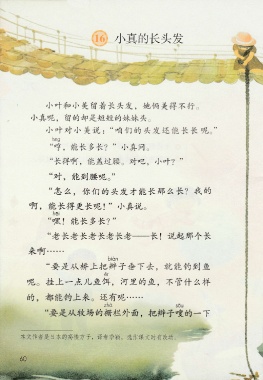 16 小真的长头发
小叶和小美留着长头发，她俩美得不行。
小真呢，留的却是短短的妹妹头。
小叶对小美说：“咱们的头发还能长长呢。”
“哼，能长多长？”小真问。
“长得啊，能盖过腰。对吧，小叶？”
“对，能到腰呢。”
“怎么，你们的头发才能长那么长？我的
啊，能长得更长呢！”小真说。
“嘿！能长多长？”
“老长老长老长老长老——长！说起那个长
来啊……
biàn
“要是从桥上把辫子垂下去，就能钓到鱼
ěr
呢。挂上一点儿鱼饵，河里的鱼，不管什么样
的，都能钓上来。还有呢……
“要是从牧场的栅栏外面，把辫子嗖的一下
60